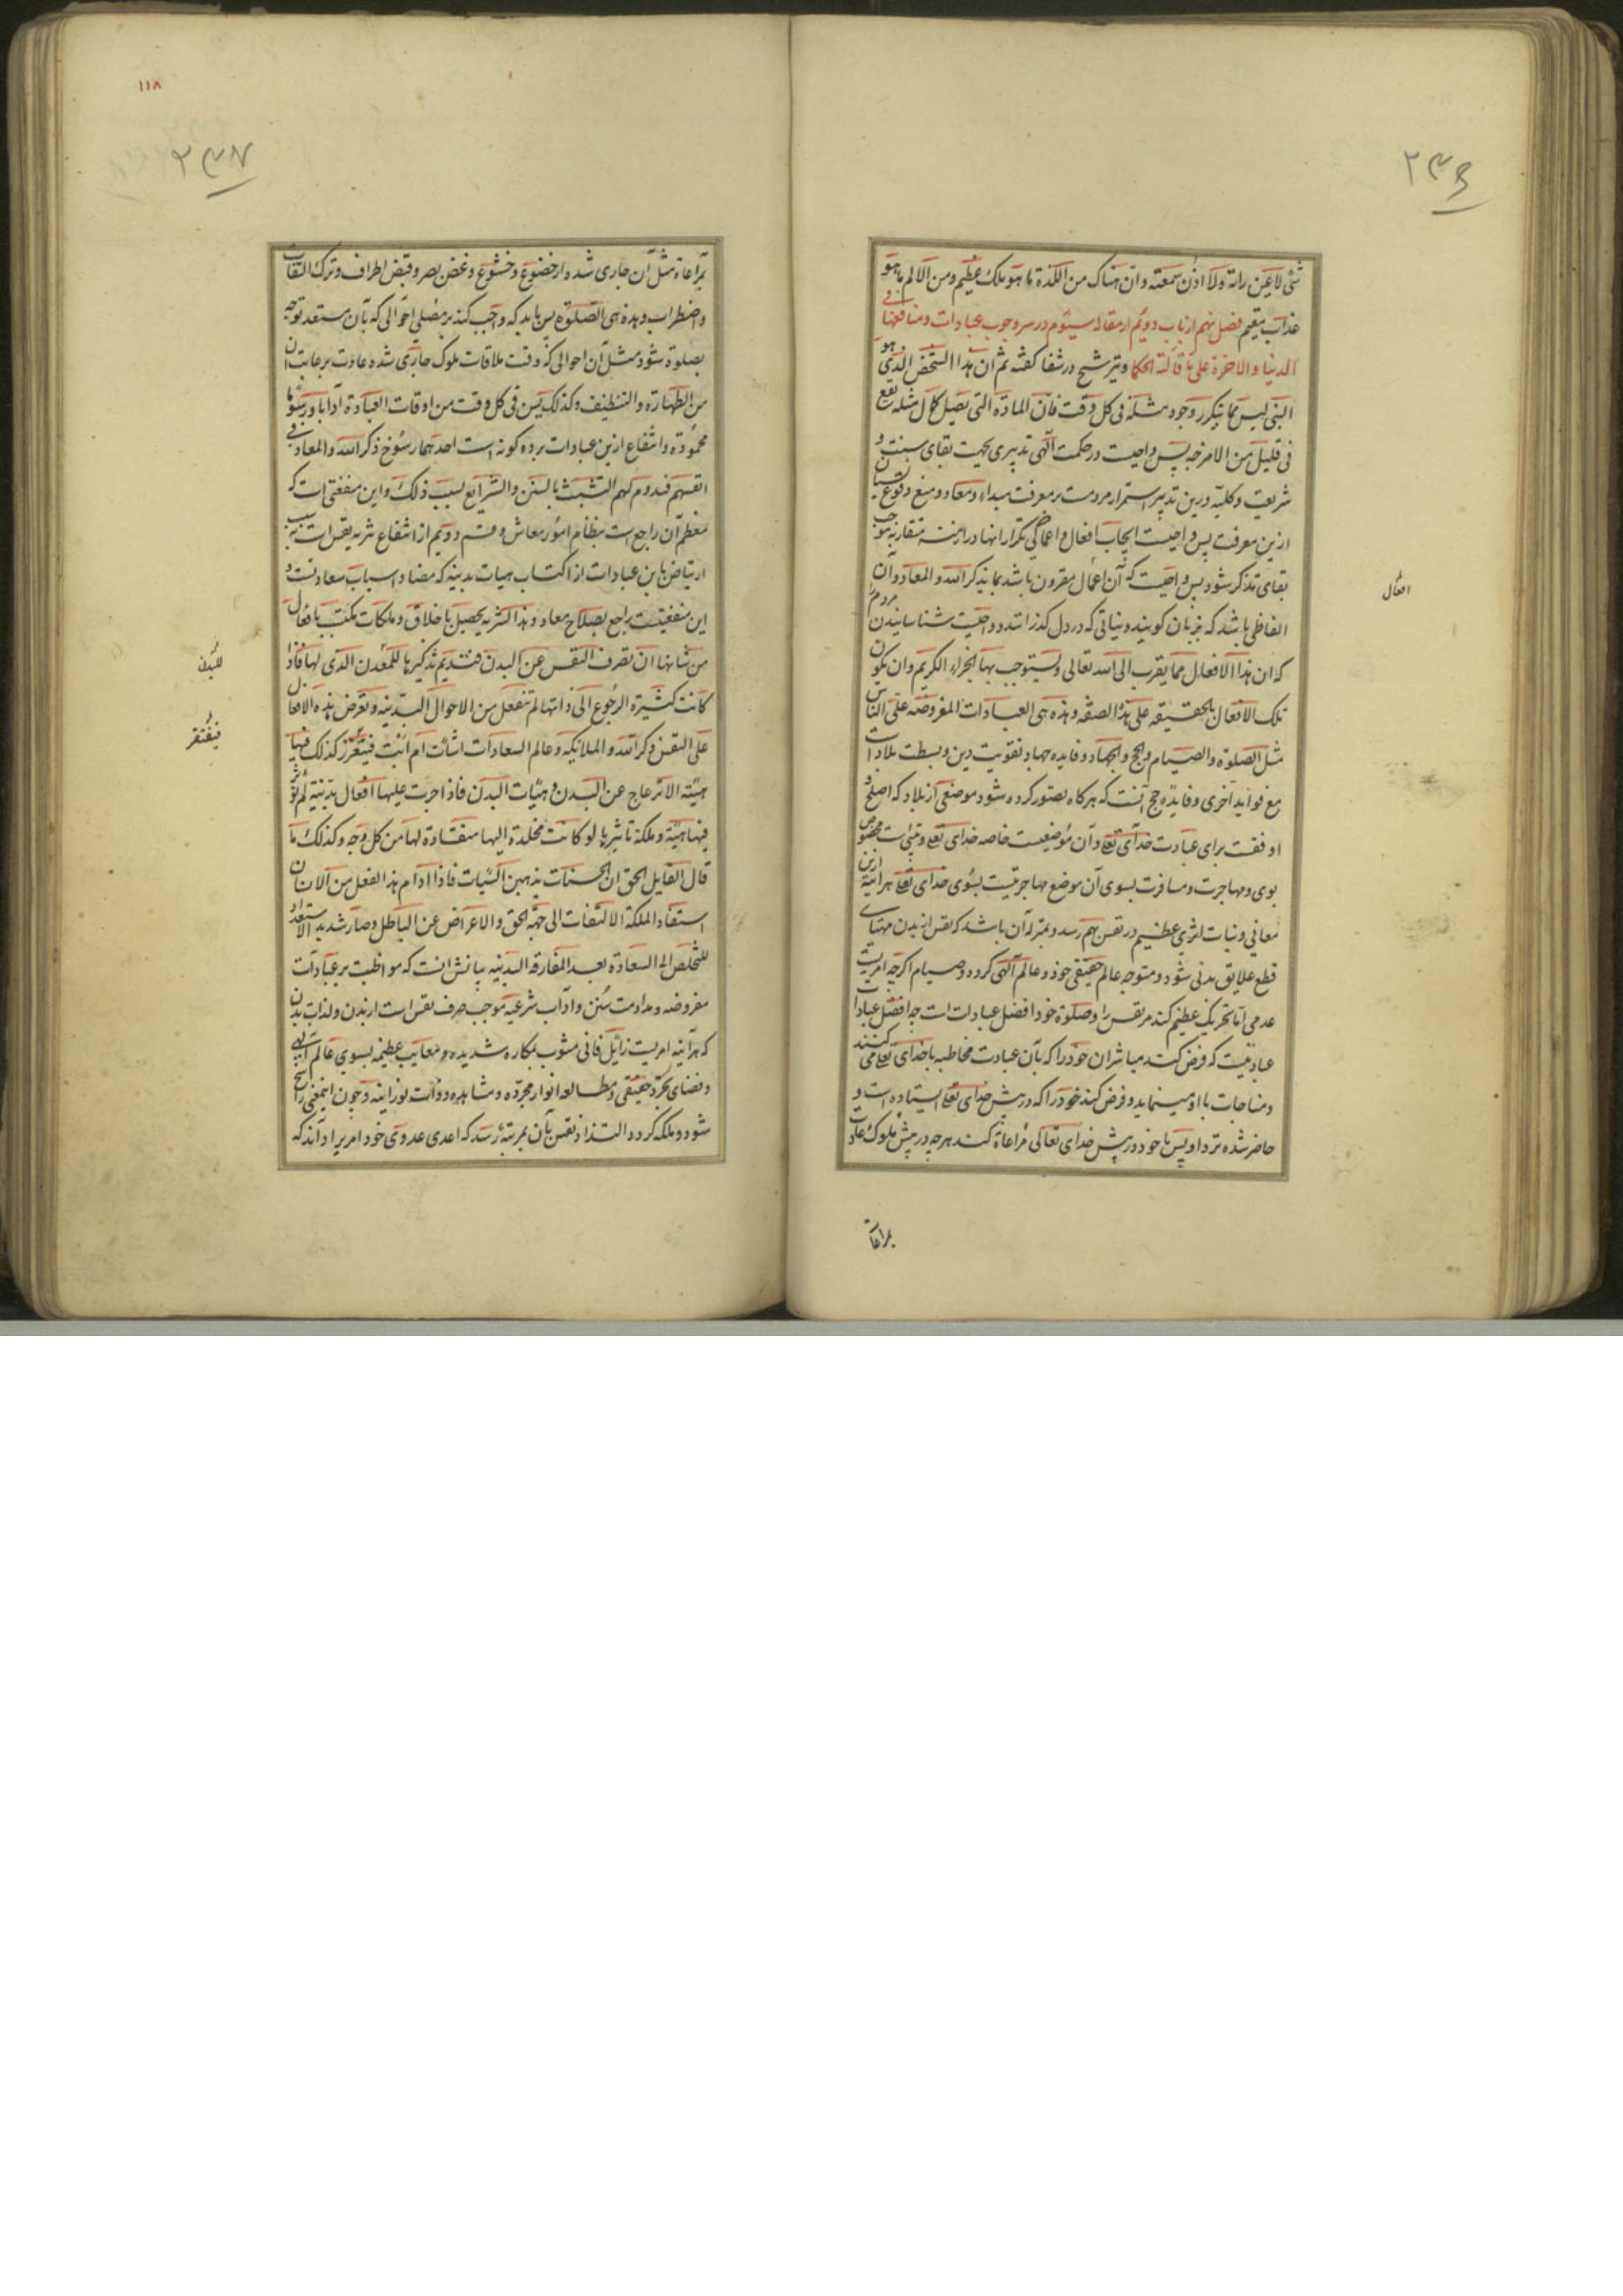 ۲۳۶
شئ لا عین راته ولا اذن سمعته وان هناک من اللذة ما هو ملک عظیم ومن الالم ما هو
عذاب مقیم فصل نهم از باب دویم از مقاله سیوم در سر وجوب عبادات ومنافعها فی
الدنیا والاخرة علی ما قالته الحکما وتیز شیخ در شفا کفته ثم ان هذا الشخص الذی هو
النبی لیس مما یتکرر وجود مثله فی کل وقت فان المادة التی تصل کمال مثله یقع
فی قلیل من الامزجه پس واجبست در حکمت الهی تدبیری بجهت بقای سنت و
شریعت وکلیه درین تدبیر استمرار مردمست بر معرفت مبداء ومعاد ومنع وقوع نسیان
ازین معرفت پس واجبست ایجاب افعال واعمالی که تکرار انها در ازمنه متقاربه موجب
بقای تذکر شود پس واجبست که آن اعمال مقرون باشد بما یذکر الله والمعاد وآن
الفاظی باشد که بزبان کویند ونیاتی که در دل کذرانند وواجبست شناسانیدن مردم
که ان هذا الافعال مما یقرب الی الله تعالی ویستوجب بها الجزاء الکریم وان یکون
تلک الافعال بالحقیقه علی هذا الصفه وهذه هی العبادات المفروضه علی الناس
مثل الصلوة والصیام والحج والجهاد وفایده جهاد تقویت دین وبسطت بلاد است
مع فواید اخری وفایده حج آنست که هرکاه تصور کرده شود موضعی از بلاد که اصلح و
اوفقست برای عبادت خدای تعالی وآن موضعیست خاصه خدای تعالی وبیت مخصوص
بوی ومهاجرت ومسافرت بسوی آن موضع مهاجرتیست بسوی خدای تعالی هر اینه ازین
معانی ونیات اثری عظیم در نفس بهم رسد وبمنزله آن باشد که نفس از بدن مهیای
قطع علایق بدنی شود ومتوجه عالم حقیقی خود وعالم الهی کردد وصیام اکرچه امریست
عدمی اما تحریک عظیم کند مر نفس را وصلوة خود افضل عبادات است چه افضل عبادات
عبادتیست که فرض کنند مباشران خود را که بآن عبادت مخاطبه با خدای تعالی می کنند
ومناجات با او مینماید وفرض کند خود را که در پیش خدای تعالی ایستاده است و
حاضر شده نزد او پس با خود در پیش خدای تعالی مراعاة کند هرچه در پیش ملوک عادت
بمراعاة
افعال
۱۱۸
۲۳۷
بمراعاة مثل آن جاری شده از خضوع وخشوع وغض بصر وقبض اطراف وترک التفات
واضطراب وهذه هی الصلوة پس باید که واجب کند بر مصلی احوالی که بآن مستعد توجه
بصلوة شود مثل آن احوالی که وقت ملاقات ملوک جاری شده عادت برعایت ان
من الطهارة والتنظیف وکذلک یسن فی کل وقت من اوقات العبادة آدابا ورسوما
محموده وانتفاع ازین عبادات بر دو کونه است احدهما رسوخ ذکر الله والمعاد فی
انفسهم فیدوم لهم التشبث بالسنن والشرایع بسبب ذلک واین منفعتی است که
معظم آن راجع است بنظام امور معاش وقسم دویم از انتفاع تنزیه نفس است بسبب
ارتیاض باین عبادات از اکتساب هیات بدنیه که مضاد اسباب سعادتست و
این منفعتیست راجع بصلاح معاد وهذا التنزیه یحصل باخلاق وملکات یکتسب بافعال
من شانها ان تصرف النفس عن البدن فتدیم تذکیرها للمعدن الذی لها فاذا
کانت کثیرة الرجوع الی ذاتها لم تنفعل من الاحوال البدنیه وتعرض هذه الافعال
علی النفس ذکر الله والملائکه وعالم السعادات اشائت ام ابت فیتقرر کذلک فیها
هیئة الانزعاج عن البدن وهیئات البدن فاذا جرت علیها افعال بدنیة لم تؤثر
فیها هیئة وملکة تاثیرها لو کانت مخلدة الیها منقادة لها من کل وجه وکذلک ما
قال القایل الحق ان الحسنات یذهبن السیئات فاذا ادام هذا الفعل من الانسان
استفاد الملکة الالتفات الی جهة الحق والاعراض عن الباطل وصار شدید الاستعداد
للتخلص الی السعادة بعد المفارقه البدنیه بیانش انست که مواظبت بر عبادات
مفروضه ومداومت سنن وآداب شرعیه موجب صرف نفس است از بدن ولذات بدن
که هر آینه امریست زائل فانی مشوب بمکاره شدیده ومعایب عظیمه بسوی عالم الهی
وفضای تجرد حقیقی ومطالعه انوار مجرده ومشاهده ذوات نورانیه وچون اینمعنی راسخ
شود وملکه کردد التذاذ نفس بآن بمرتبه رسد که اعدی عدوی خود امری را داند که
للبدن
فیفتقر